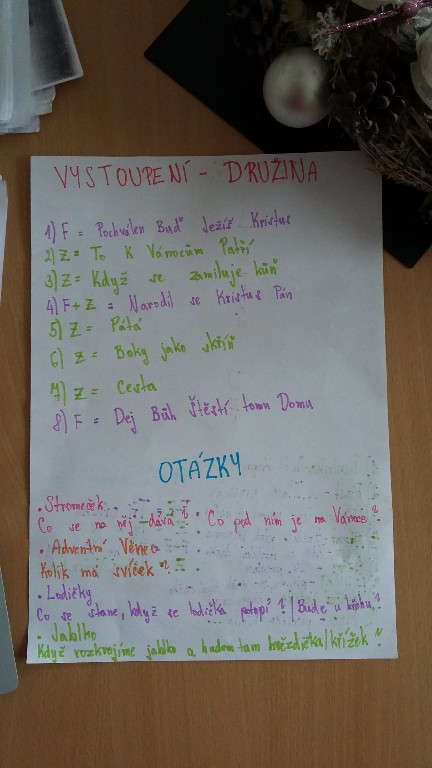 VYSTOUPENÍ - DRUŽINA
1) F = Pochválen Buď Ježíš Kristus
2) Z = To K Vánocům Patří
3) Z = Když se zamiluje kůň
4) F + Z = Narodil se Kristus Pán
5) Z = Pátá
6) Z = Boky jako skříň
7) Z = Cesta
8) F = Dej Bůh Štěstí tomu Domu
OTÁZKY
• Stromeček
Co se na něj dává? • Co pod ním je na Vánoce?
• Adventní Věnec
Kolik má svíček?
• Lodičky
Co se stane, když se lodička potopí? / Bude u břehu?
• Jablko
Když rozkrojíme jablko a budem tam hvězdička / křížek?